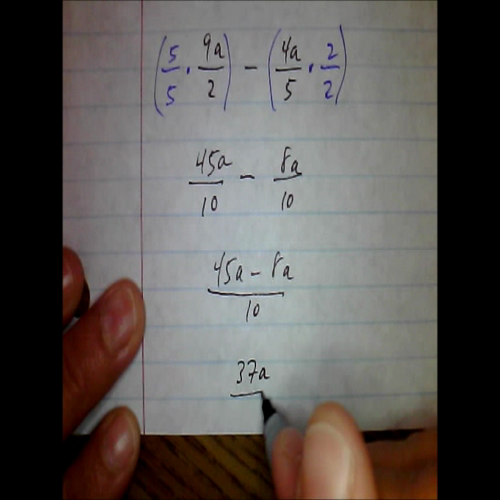 (5/5 · 9a/2) − (4a/5 · 2/2)
45a/10 − 8a/10
45a − 8a/10
37a